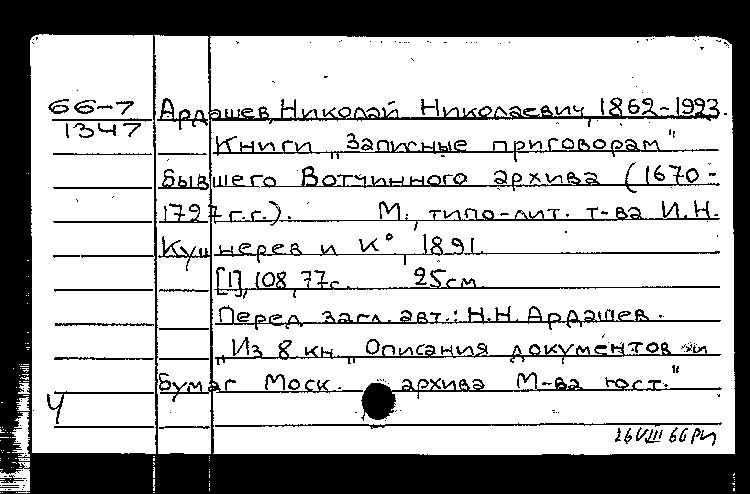 66-7
1347
Ардашев, Николай Николаевич, 1862-1923.
Книги „Записные приговорам"
бывшего Вотчинного архива (1670-
1727 г.г.). М., типо-лит. т-ва И.Н.
Кушнерев и К°, 1891.
[1], 108, 77с. 25см.
Перед загл. авт.: Н.Н. Ардашев.
„Из 8 кн. „Описания документов и
бумаг Моск. архива М-ва юст."
Ч
26 VIII 66